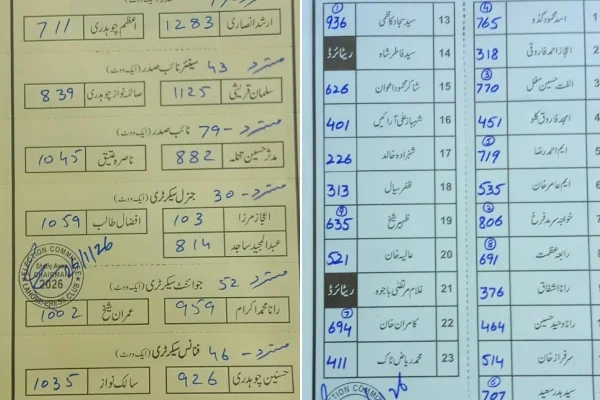 ارشد انصاری 1283 اعظم چوہدری 711
مسترد - 43 سینئر نائب صدر (ایک ووٹ)
سلمان قریشی 1125 صائمہ نواز چوہدری 839
مسترد - 79 نائب صدر (ایک ووٹ)
مدثر حسین تتلہ 882 ناصرہ عتیق 1045
مسترد - 30 جنرل سیکرٹری (ایک ووٹ)
اعجاز مرزا 103 افضال طالب 1059
عبدالمجید ساجد 814
ELECTION COMMITTEE
CHAIRMAN
2026
LAHORE PRESS CLUB
مسترد - 52 جوائنٹ سیکرٹری (ایک ووٹ)
رانا محمد اکرام 959 عمران شیخ 1002
مسترد - 46 فنانس سیکرٹری (ایک ووٹ)
حسنین چوہدری 926 سالک نواز 1035
1 اسد محمود گڈہ 765 (4)
اعجاز احمد فاروقی 318
الفت حسین مغل 770 (3)
امجد فاروق کلو 451
ایم احمد رضا 719 (5)
ایم عامر خان 535
خواجہ سرمد فرخ 806 (2)
رابعہ عظمت 691 (8)
رانا اشفاق 376
رانا وحید حسین 464
سرفراز خان 514
سید بدر سعید 707 (6)
13 سید سجاد کاظمی 936 (1)
14 سید فاطر شاہ ریٹائرڈ
15 شاکر محمود اعوان 626
16 شہباز علی آرائیں 401
17 شہزادہ خالد 226
18 ظفر سیال 313
19 ظہیر شیخ 635 (9)
20 عالیہ خان 521
21 غلام مرتضیٰ باجوہ ریٹائرڈ
22 کامران خان 694 (7)
23 محمد ریاض ٹاک 411